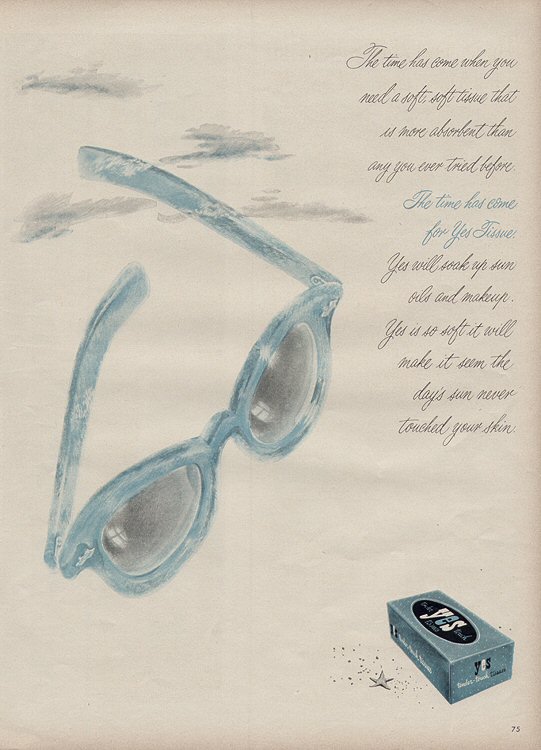 The time has come when you
need a soft, soft tissue that
is more absorbent than
any you ever tried before.
The time has come
for Yes Tissue.
Yes will soak up sun
oils and makeup.
Yes is so soft it will
make it seem the
day's sun never
touched your skin.
yes
yes
tender-touch tissues
yes
tender-touch tissues
75